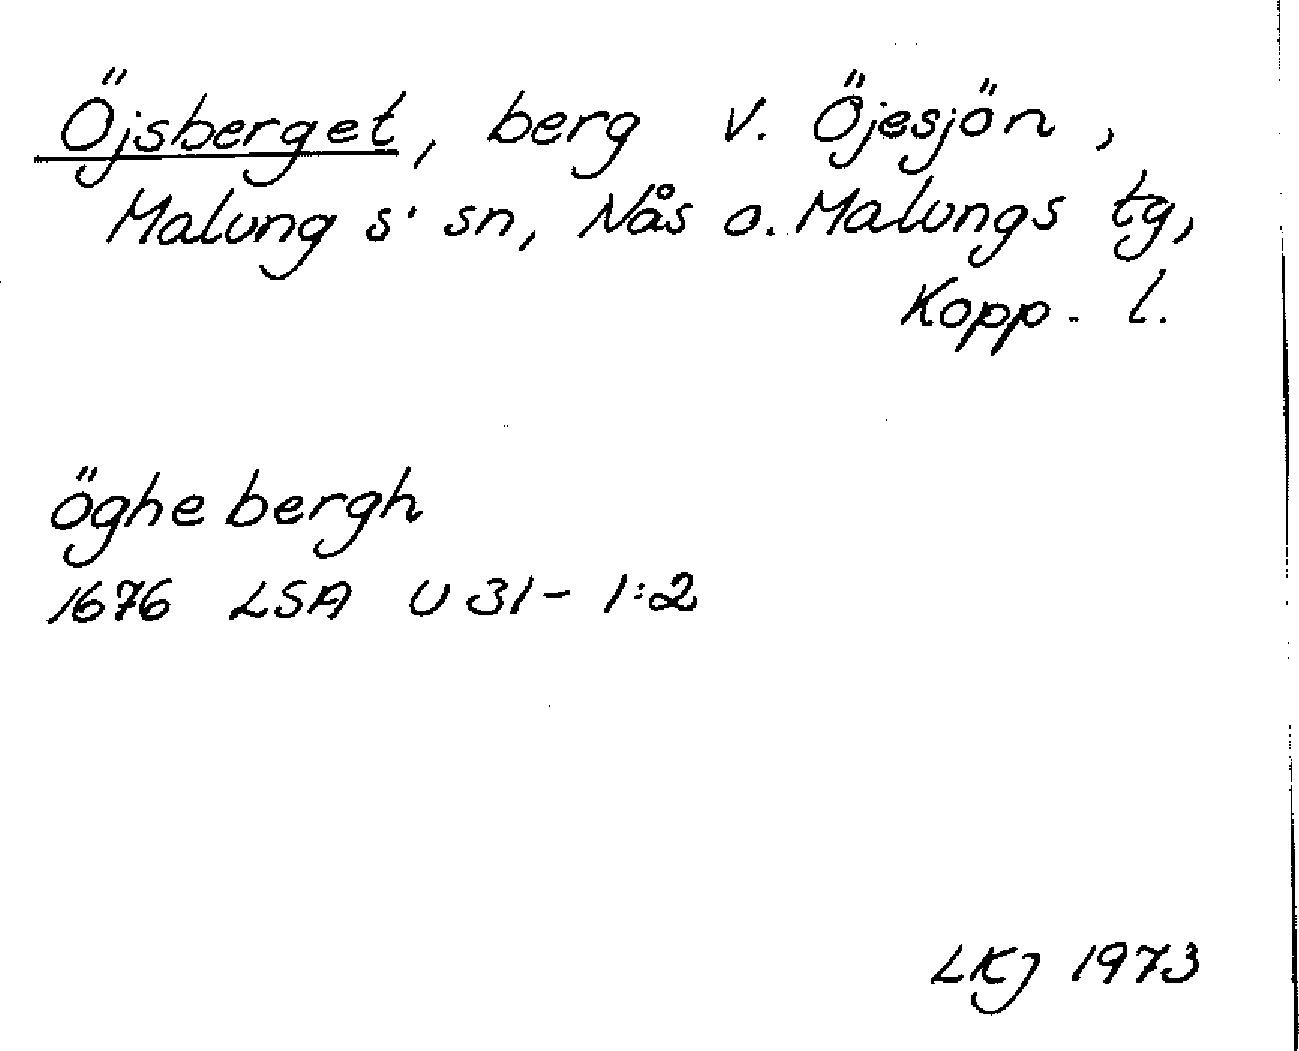 Öjsberget, berg v. Öjesjön,
Malung s' sn, Nås o. Malungs tg,
Kopp. l.
öghe bergh
1676 LSA U 31- 1:2
LKJ 1973